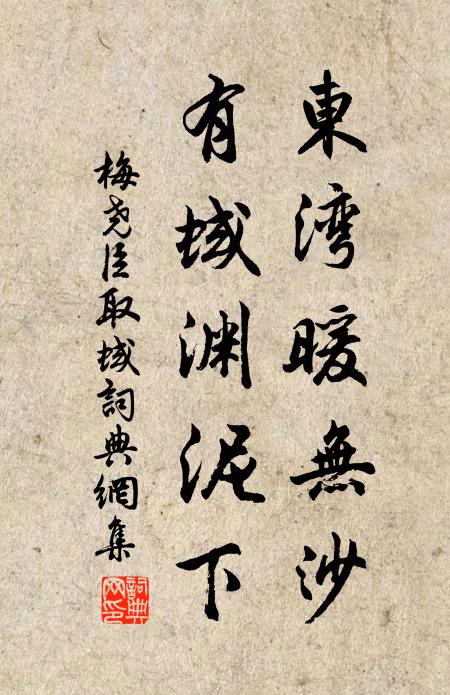 東湾暖無沙
有域渊泥下
梅尧臣取域詞典網集
詞典網印